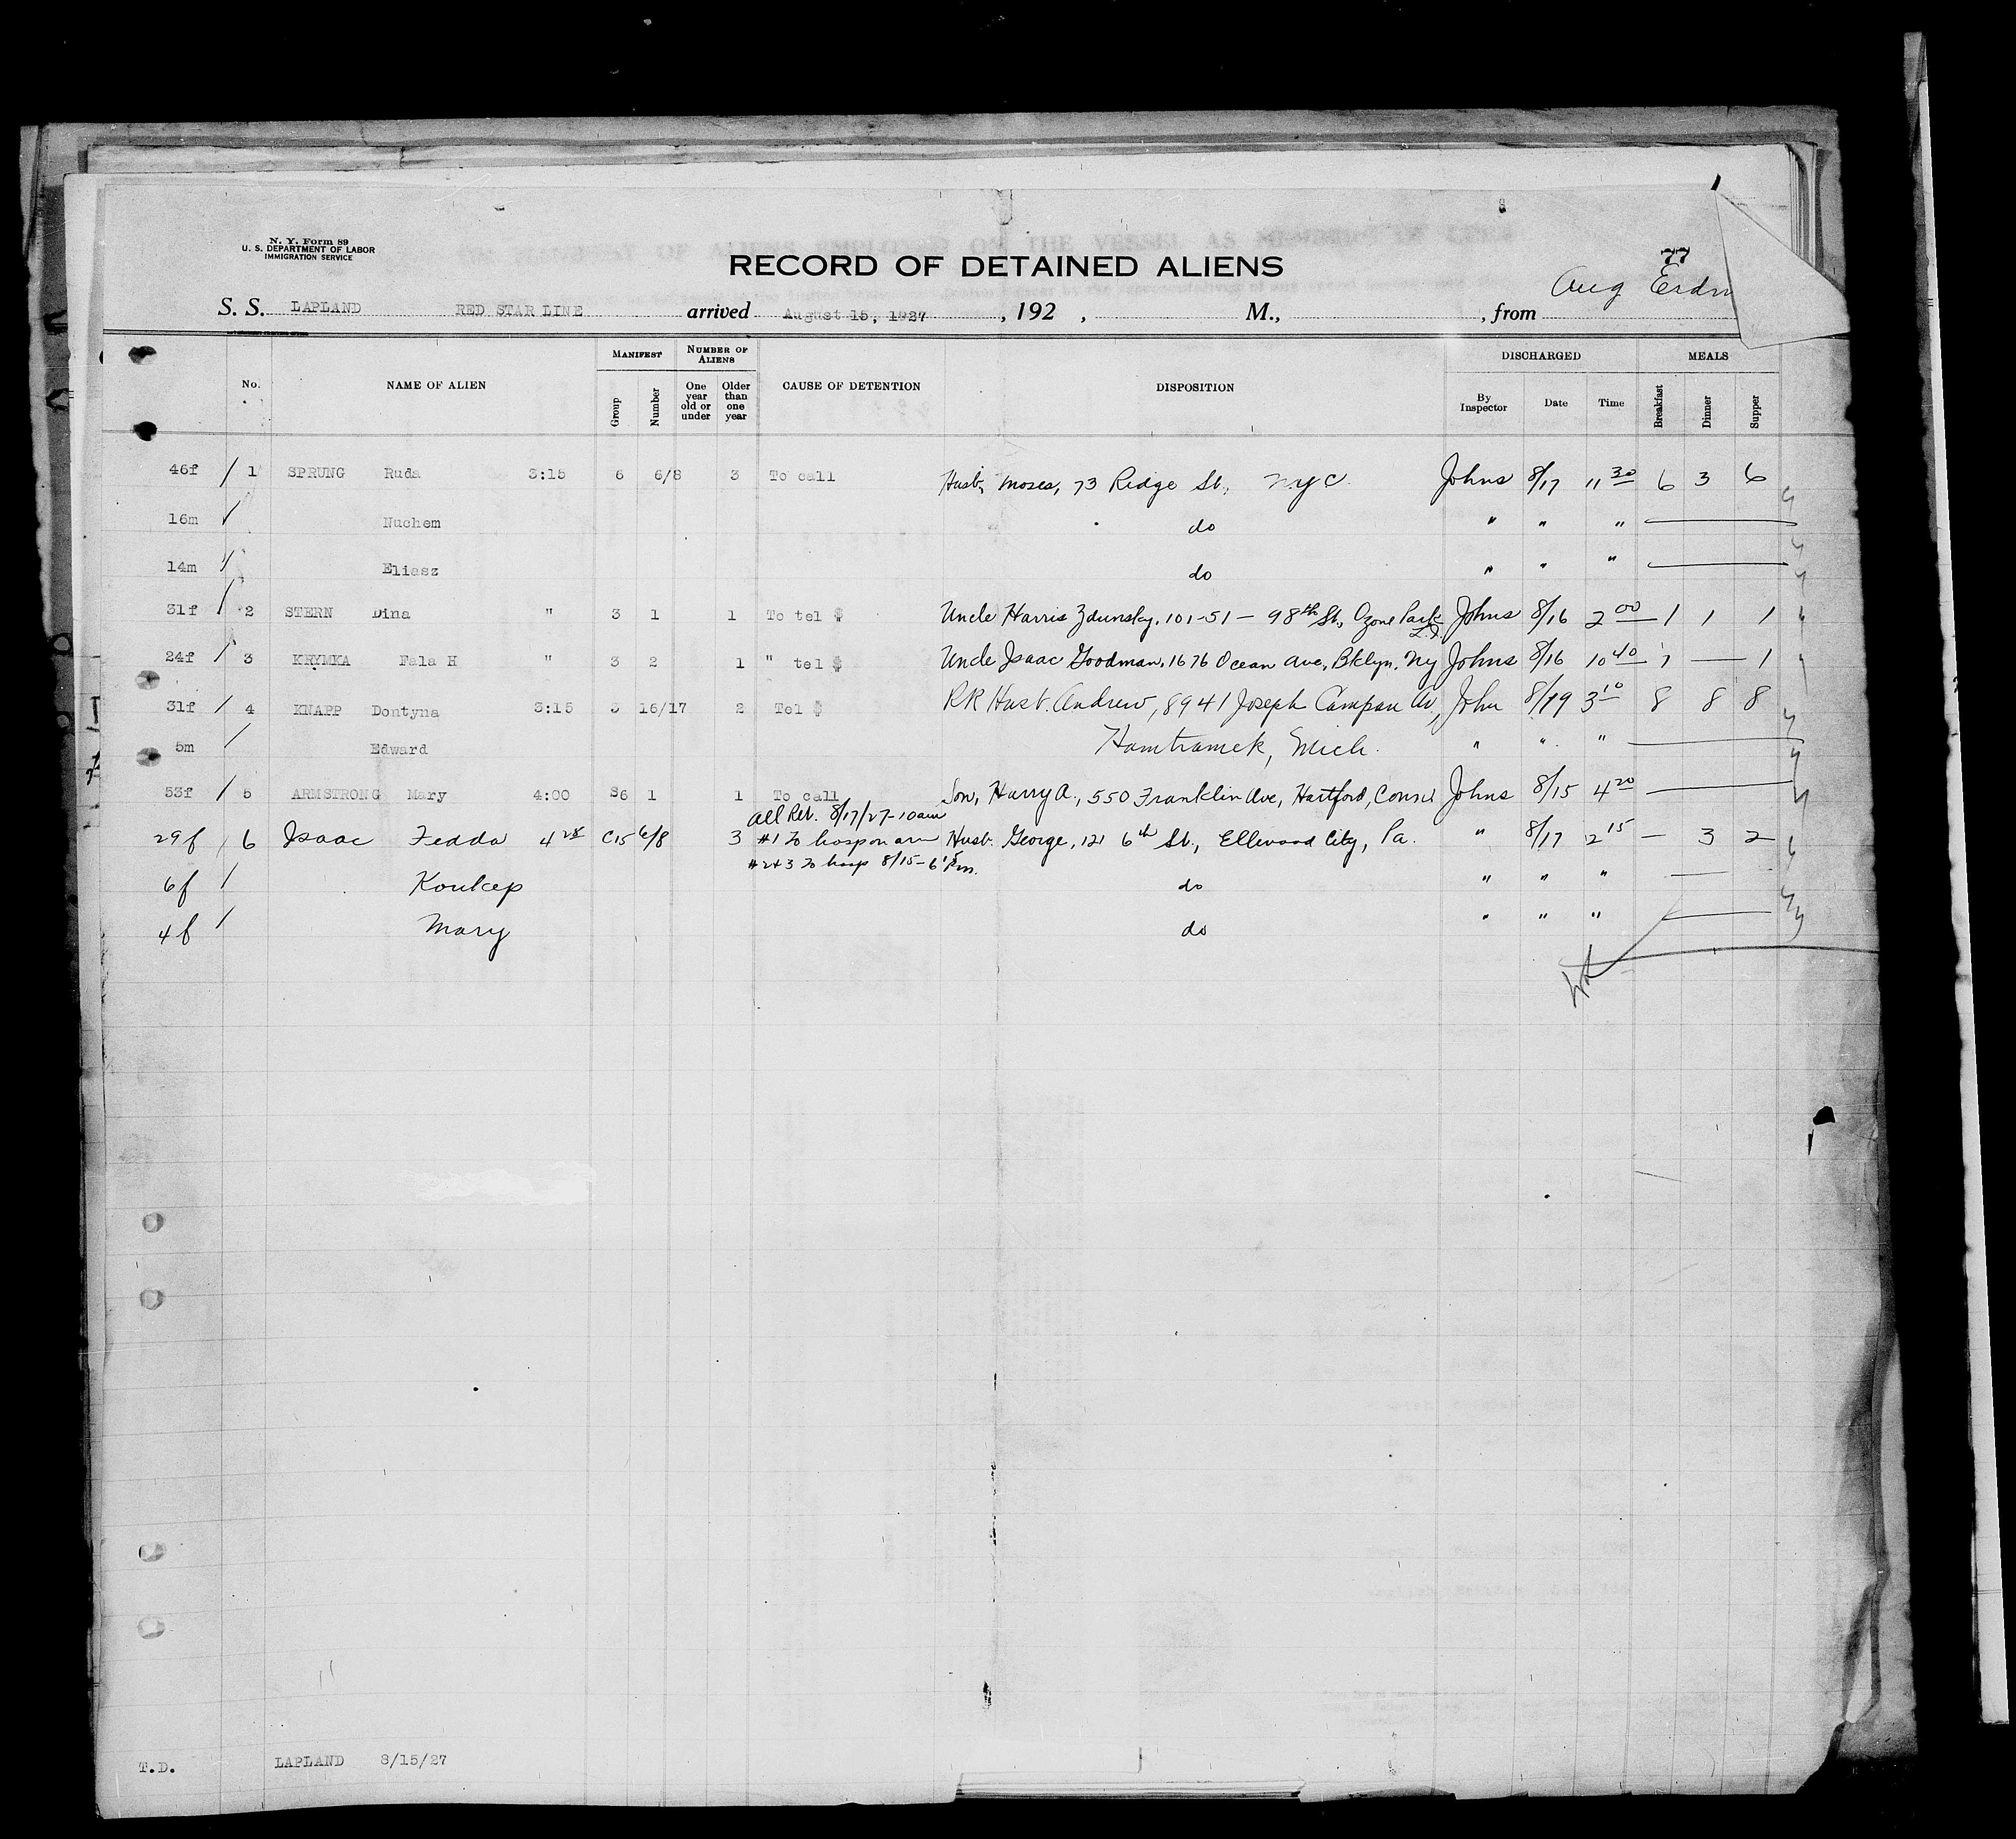 N. Y. Form 89
U. S. DEPARTMENT OF LABOR
IMMIGRATION SERVICE
77
RECORD OF DETAINED ALIENS
Aug
S. S. LAPLAND RED STAR LINE arrived August 15, 1927 , 192 , M., , from
No. NAME OF ALIEN MANIFEST Group Number NUMBER OF ALIENS One year old or under Older than one year CAUSE OF DETENTION DISPOSITION DISCHARGED By Inspector Date Time MEALS Breakfast Dinner Supper
46f / 1 SPRUNG Ruda 3:15 6 6/8 3 To call Husb, Moses, 73 Ridge St., NYC Johns 8/17 11 30 6 3 6
16m / Nuchem do " " "
14m / Eliasz do " " "
31f / 2 STERN Dina " 3 1 1 To tel $ Uncle Harris Zdunsky, 101-51 - 98th St., Ozone Park L.I. Johns 8/16 2 00 1 1 1
24f / 3 KRYMKA Fala H " 3 2 1 " tel $ Uncle Isaac Goodman, 1676 Ocean Ave, Bklyn. NY Johns 8/16 10 40 1 — 1
31f / 4 KNAPP Dontyna 3:15 3 16/17 2 Tel $ RR Husb. Andrew, 8941 Joseph Campau Av, John 8/19 3 10 8 8 8
5m / Edward Hamtramck, Mich. " " "
53f / 5 ARMSTRONG Mary 4:00 S6 1 1 To call Son, Harry A., 550 Franklin Ave, Hartford, Conn Johns 8/15 4 20
All Ret. 8/17/27-10am
29f / 6 Isaac Fedda 4 25 C15 6/8 3 #1 To hosp on arr Husb. George, 121 6th St., Ellwood City, Pa. " 8/17 2 15 — 3 2
#2+3 To hosp 8/15-6 15 Pm.
6f / Koulcep do " " "
4f / Mary do " " "
T.D. LAPLAND 8/15/27